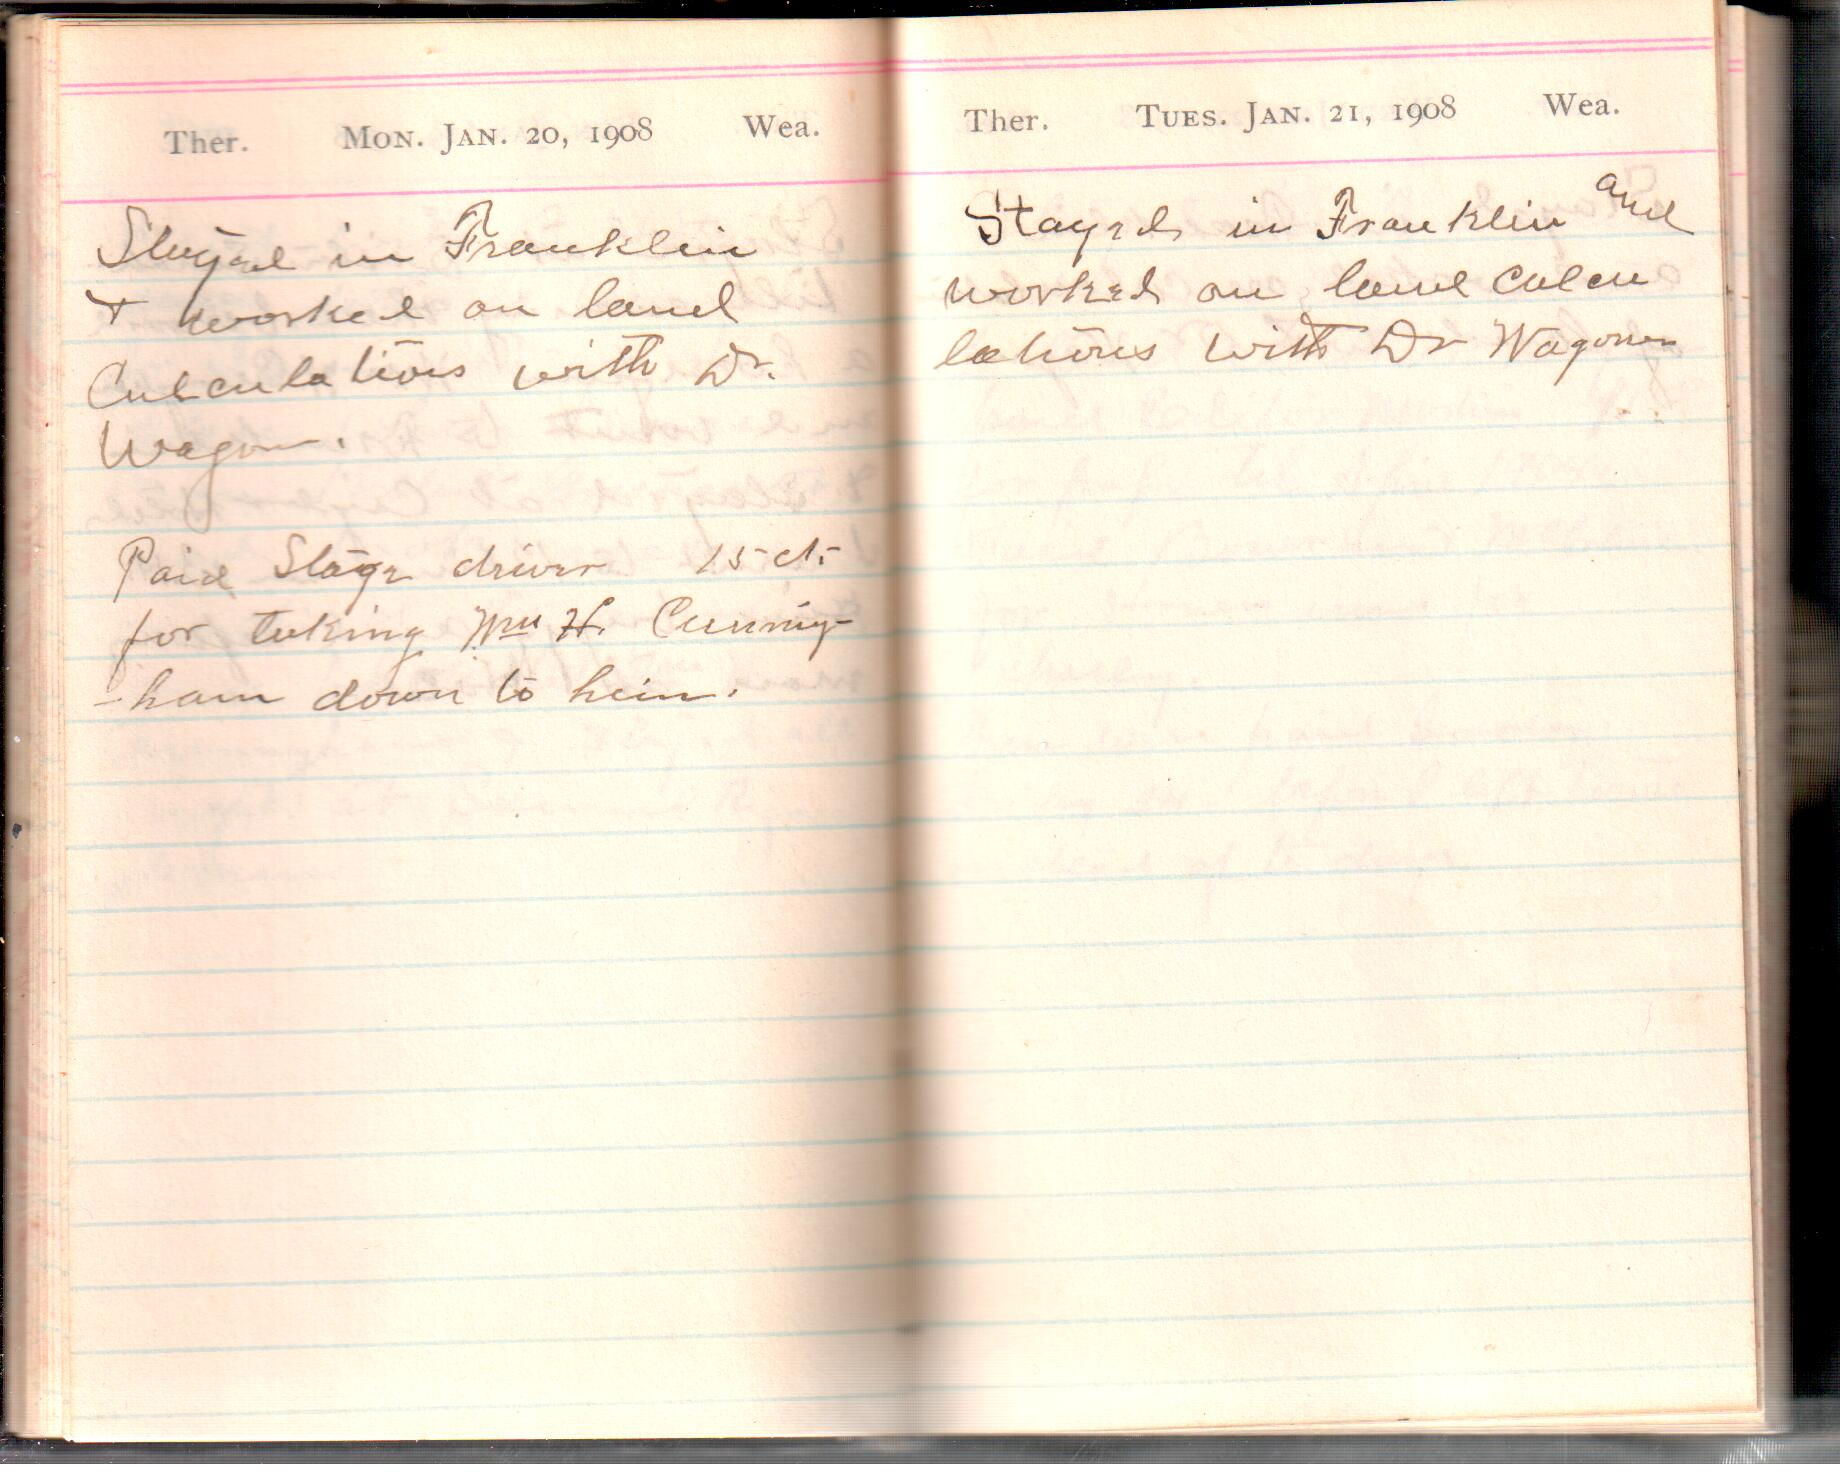 Ther. MON. JAN. 20, 1908 Wea.
Stayed in Franklin
& worked on land
Calculations with Dr.
Wagoner.
Paid Stage driver 15 ct.
for taking Wm H. Cunning-
-ham down to him.
Ther. TUES. JAN. 21, 1908 Wea.
Stayed in Franklin and
worked on land calcu
lations with Dr Wagoner